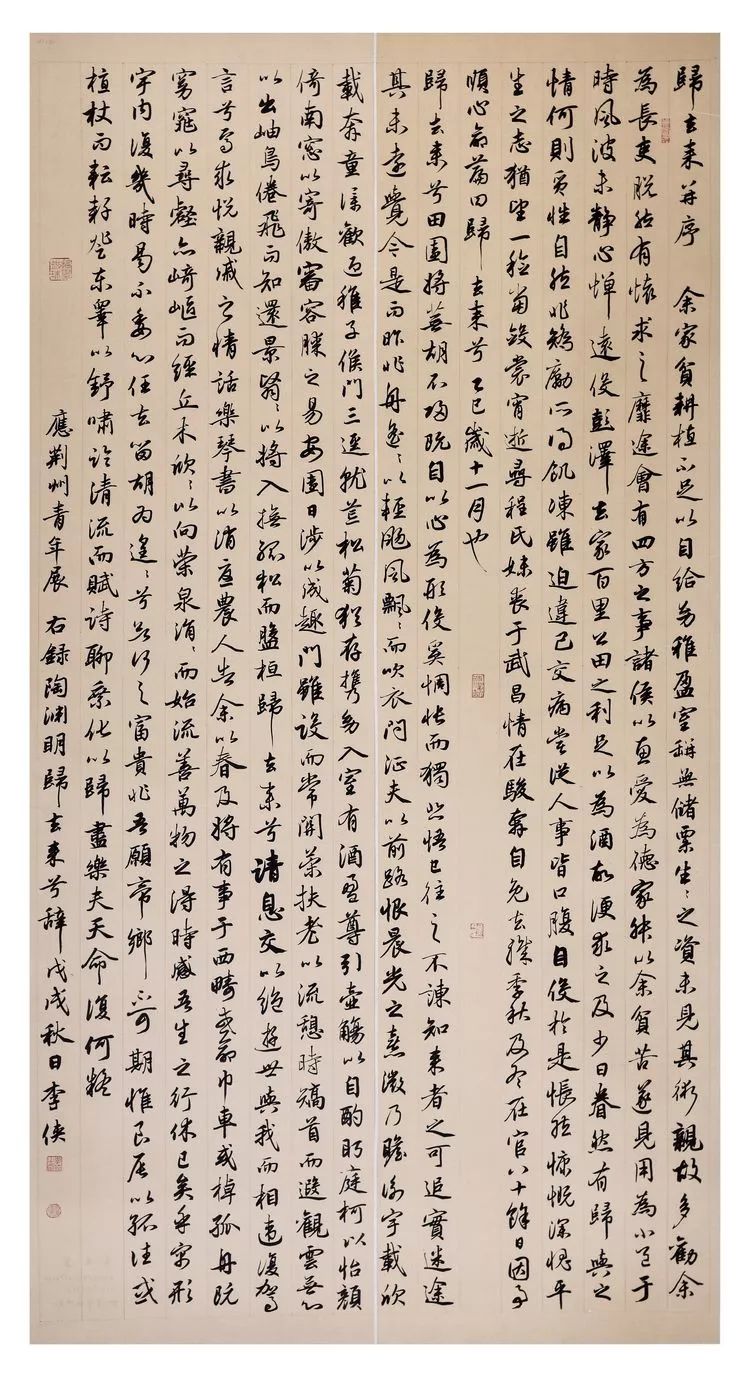 歸去來并序 余家貧耕植不足以自給幼稚盈室缾無儲粟生〻之資未見其術親故多勸余
為長吏脫然有懷求之靡途會有四方之事諸侯以惠愛為德家叔以余貧苦遂見用為小邑于
時風波未靜心憚遠役彭澤去家百里公田之利足以為酒故便求之及少日眷然有歸與之
情何則質性自然非矯勵所得飢凍雖迫違己交病嘗從人事皆口腹自役於是悵然慷慨深愧平
生之志猶望一稔當斂裳宵逝尋程氏妹喪于武昌情在駿奔自免去職季秋及冬在官八十餘日因事
順心命篇曰歸去來兮乙巳歲十一月也
歸去來兮田園將蕪胡不歸既自以心為形役奚惆悵而獨悲悟已往之不諫知來者之可追實迷途
其未遠覺今是而昨非舟遙〻以輕颺風飄〻而吹衣問征夫以前路恨晨光之熹微乃瞻衡宇載欣
載奔童僕歡迎稚子候門三逕就荒松菊猶存攜幼入室有酒盈尊引壺觴以自酌眄庭柯以怡顏
倚南窓以寄傲審容膝之易安園日涉以成趣門雖設而常關策扶老以流憩時矯首而遐觀雲無心
以出岫鳥倦飛而知還景翳〻以將入撫孤松而盤桓歸去來兮請息交以絕遊世與我而相違復駕
言兮焉求悅親戚之情話樂琴書以消憂農人告余以春及將有事于西疇或命巾車或棹孤舟既
窈窕以尋壑亦崎嶇而經丘木欣〻以向榮泉涓〻而始流善萬物之得時感吾生之行休已矣乎寓形
宇內復幾時曷不委心任去留胡為遑〻兮欲何之富貴非吾願帝鄉不可期懷良辰以孤往或
植杖而耘耔登東皋以舒嘯臨清流而賦詩聊乘化以歸盡樂夫天命復何疑
應荊州青年展 右録陶淵明歸去來兮辭戊戌秋日李俠